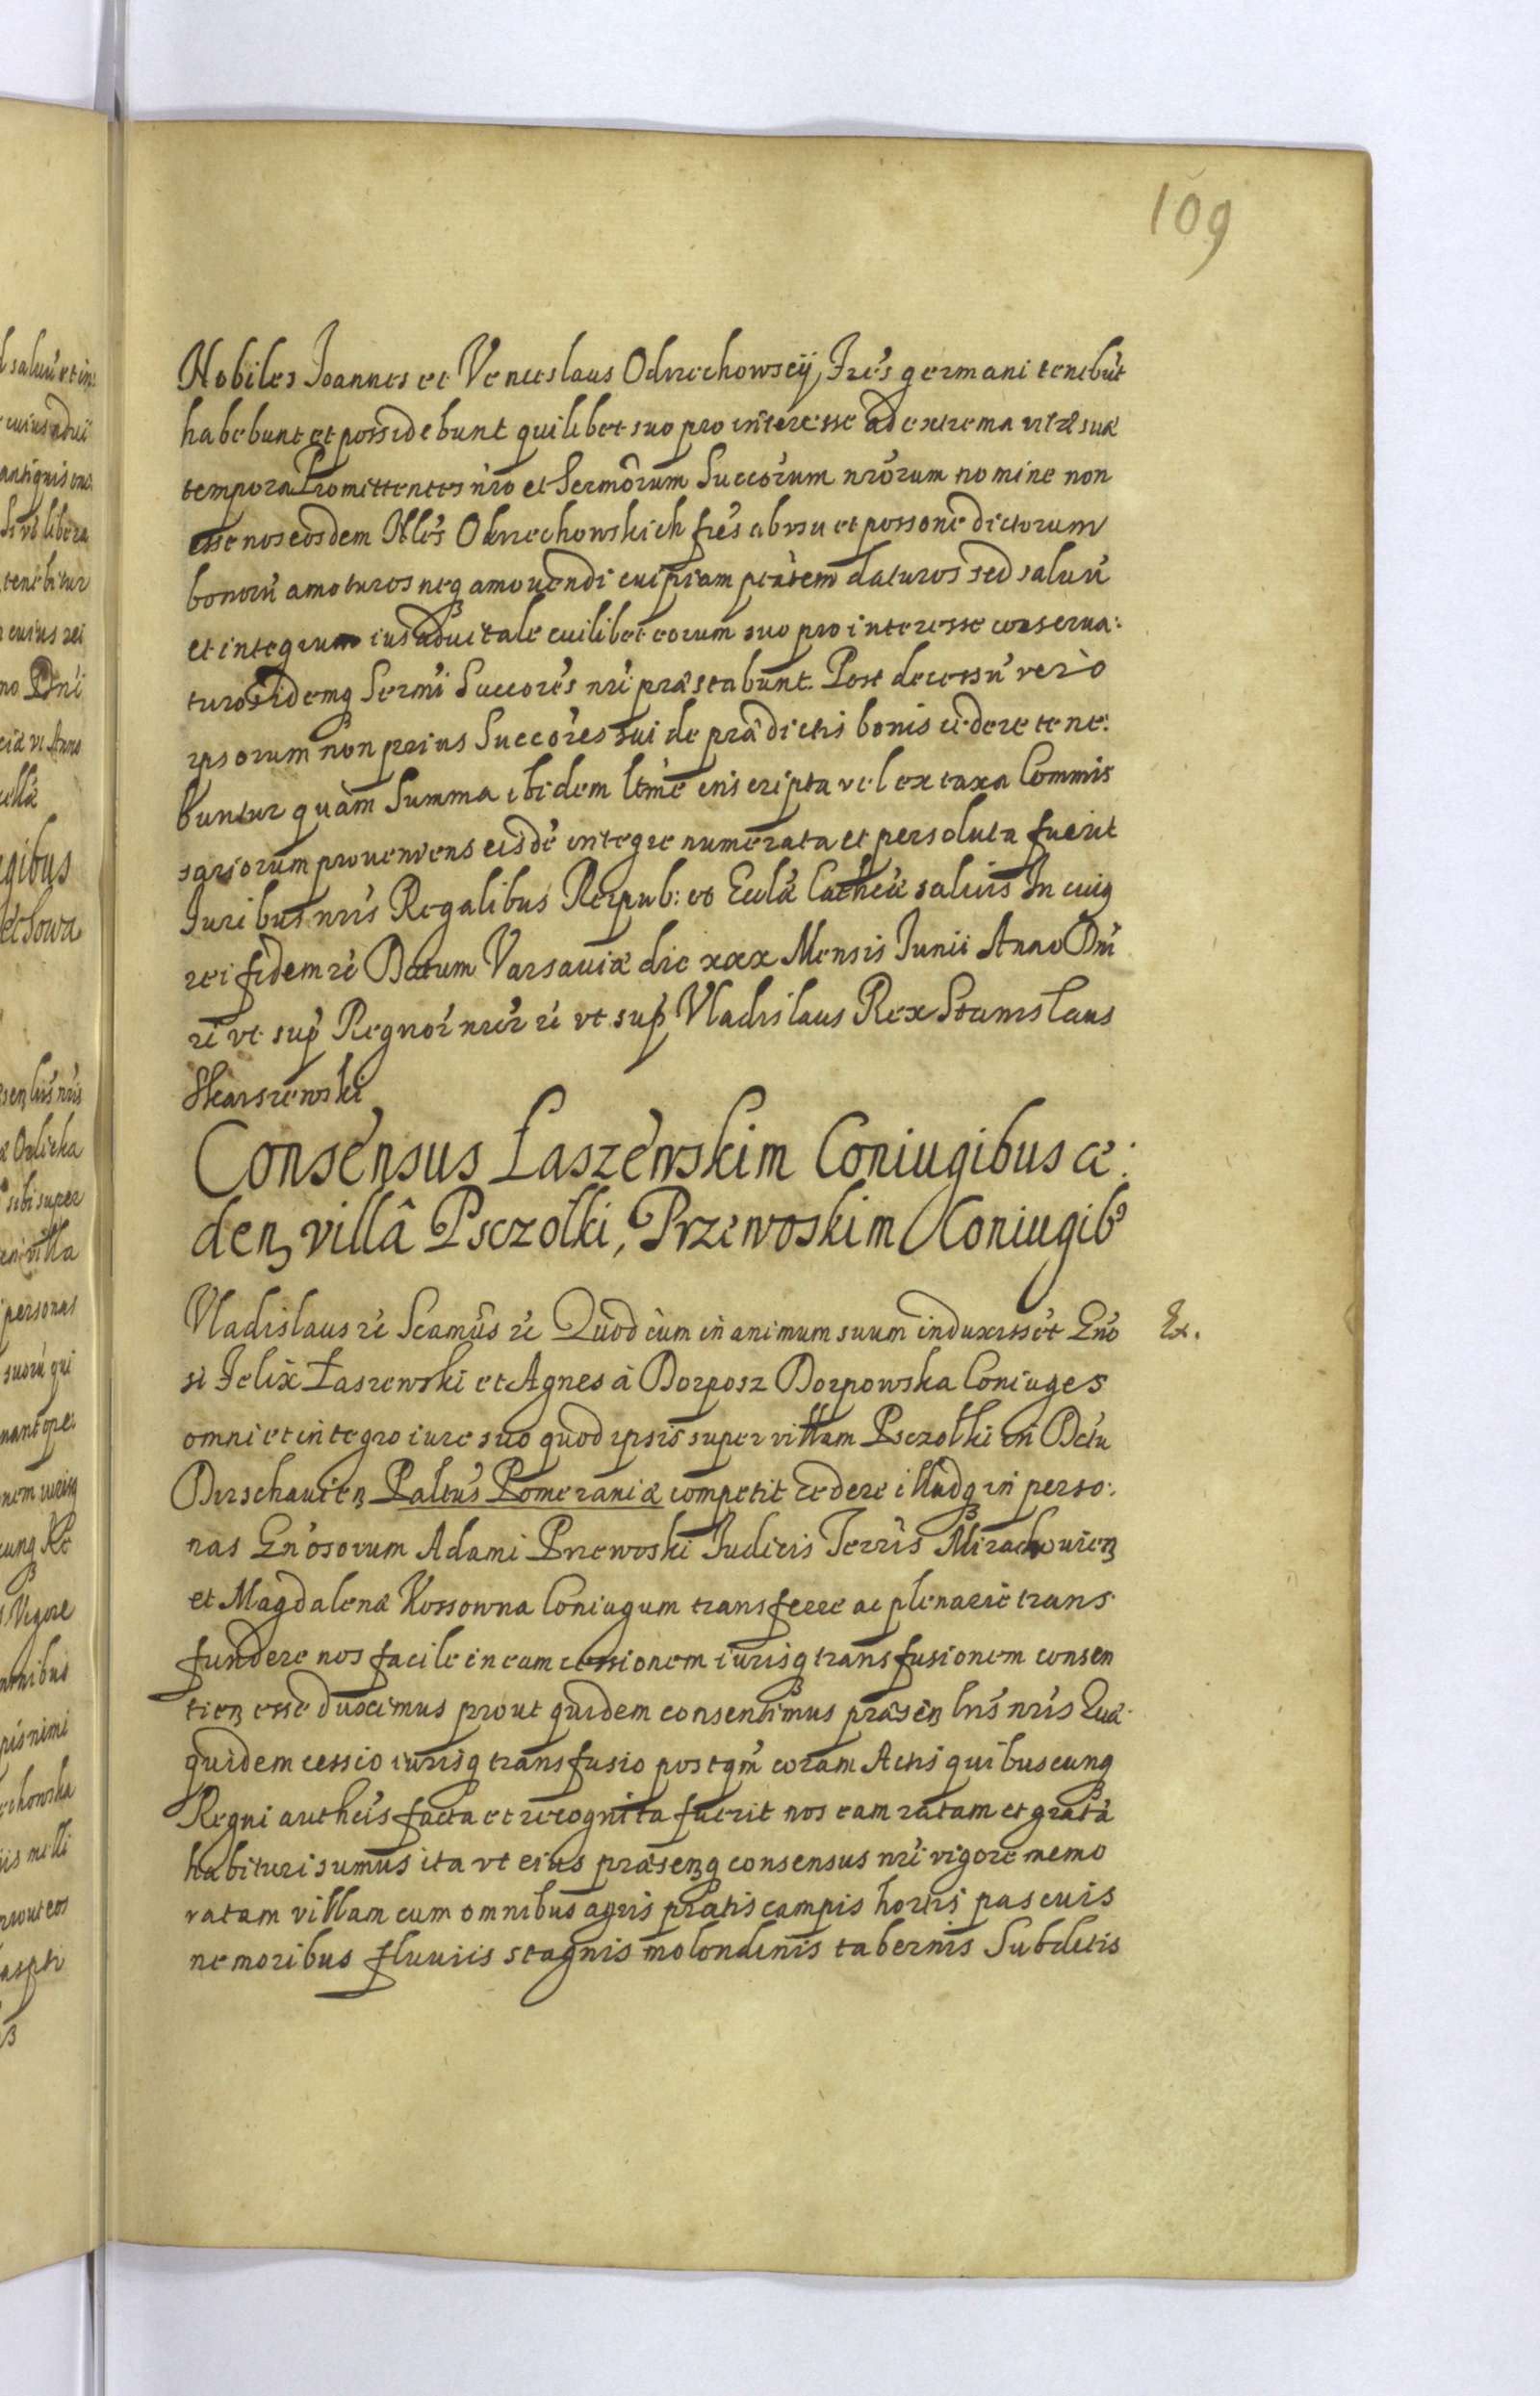 109
Nobiles Joannes et Venceslaus Odrzechowscÿ, Frés germani tenebút
habebunt et possidebunt quilibet suo pro interesse ad extrema vitæ suæ
tempora Promittentes nró et Sermórum Succórum nrórum nomine non
esse nos eosdem Nlés Odrzechowskich frés ab vsu et possoné dictorum
bonorú amoturos neq amouendi cuipiam ptátem daturos sed saluú
et integrum ius aduitale cuilibet eorum suo pro interesse conserua:
turos Idemq Sermi Succorés nri præstabunt. Post decessú verò
ipsorum non prius Succóres sui de prædictis bonis cedere tene:
buntur quàm Summa ibidem ltimé inscripta vel ex taxa Commis
sariorum proueniens eisdé integre numerata et persoluta fuerit
Juribus nris Regalibus Reipub: et Eccłæ Cathcæ saluis In cuiq
rei fidem rć Datum Varsauiæ die xxx Mensis Junii Anno Dni
rć vt sup Regnor nrór rć vt sup Vladislaus Rex Stanislaus
Skarszewski
Consensus Łaszewskim Coniugibus ce:
denz villâ Psczołki, Przewoskim Coniugib9
Vladislaus rć Scamús rć Quod cùm in animum suum induxissét Gnó
si Felix Łaszewski et Agnes à Dorposz Dorpowska Coniuges
omni et integro iure suo quod ipsis super villam Psczołki in Dctú
Dirschauienz Paltús Pomeraniæ competit cedere illudq in perso:
nas Gnósorum Adami Przewoski Judicis Terris Mirachouienz
et Magdalenæ Kossowna Coniugum transferre ac plenarie trans
fundere nos facile in eam cessionem iurisq transfusionem consen
tienz esse duximus prout quidem consentimus præsenz lris nris Quæ
quidem cessio iurisq transfusio postqm coram Actis quibuscunq
Regni autheis facta et recognita fuerit nos eam ratam et gratá
habituri sumus ita vt eius præsenzq consensus nri vigore memo
ratam villam cum omnibus agris pratis campis hortis pascuis
nemoribus fluuiis stagnis molendinis tabernis Subditis
Ex.